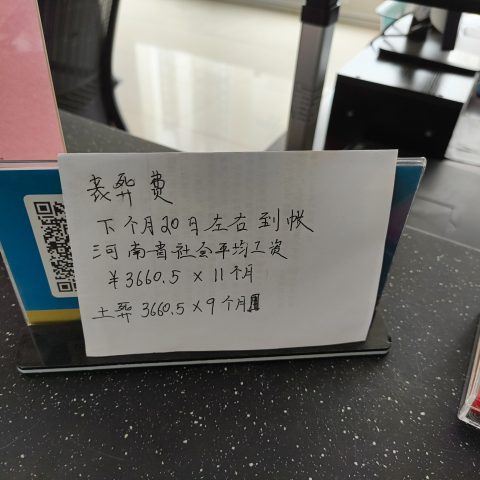 丧葬费
下个月20日左右到帐
河南省社会平均工资
¥3660.5×11个月
土葬3660.5×9个月